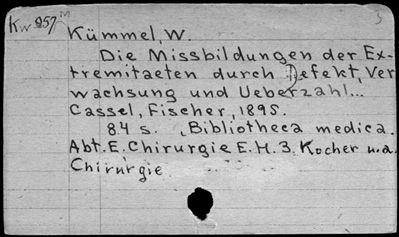 Kw 957 in
Kümmel, W.
Die Missbildungen der Ex-
tremitaeten durch Defekt, Ver
wachsung und Ueberzahl...
Cassel, Fischer, 1895.
84 s. Bibliotheca medica.
Abt. E. Chirurgie E. H. 3. Kocher u.a.
Chirurgie